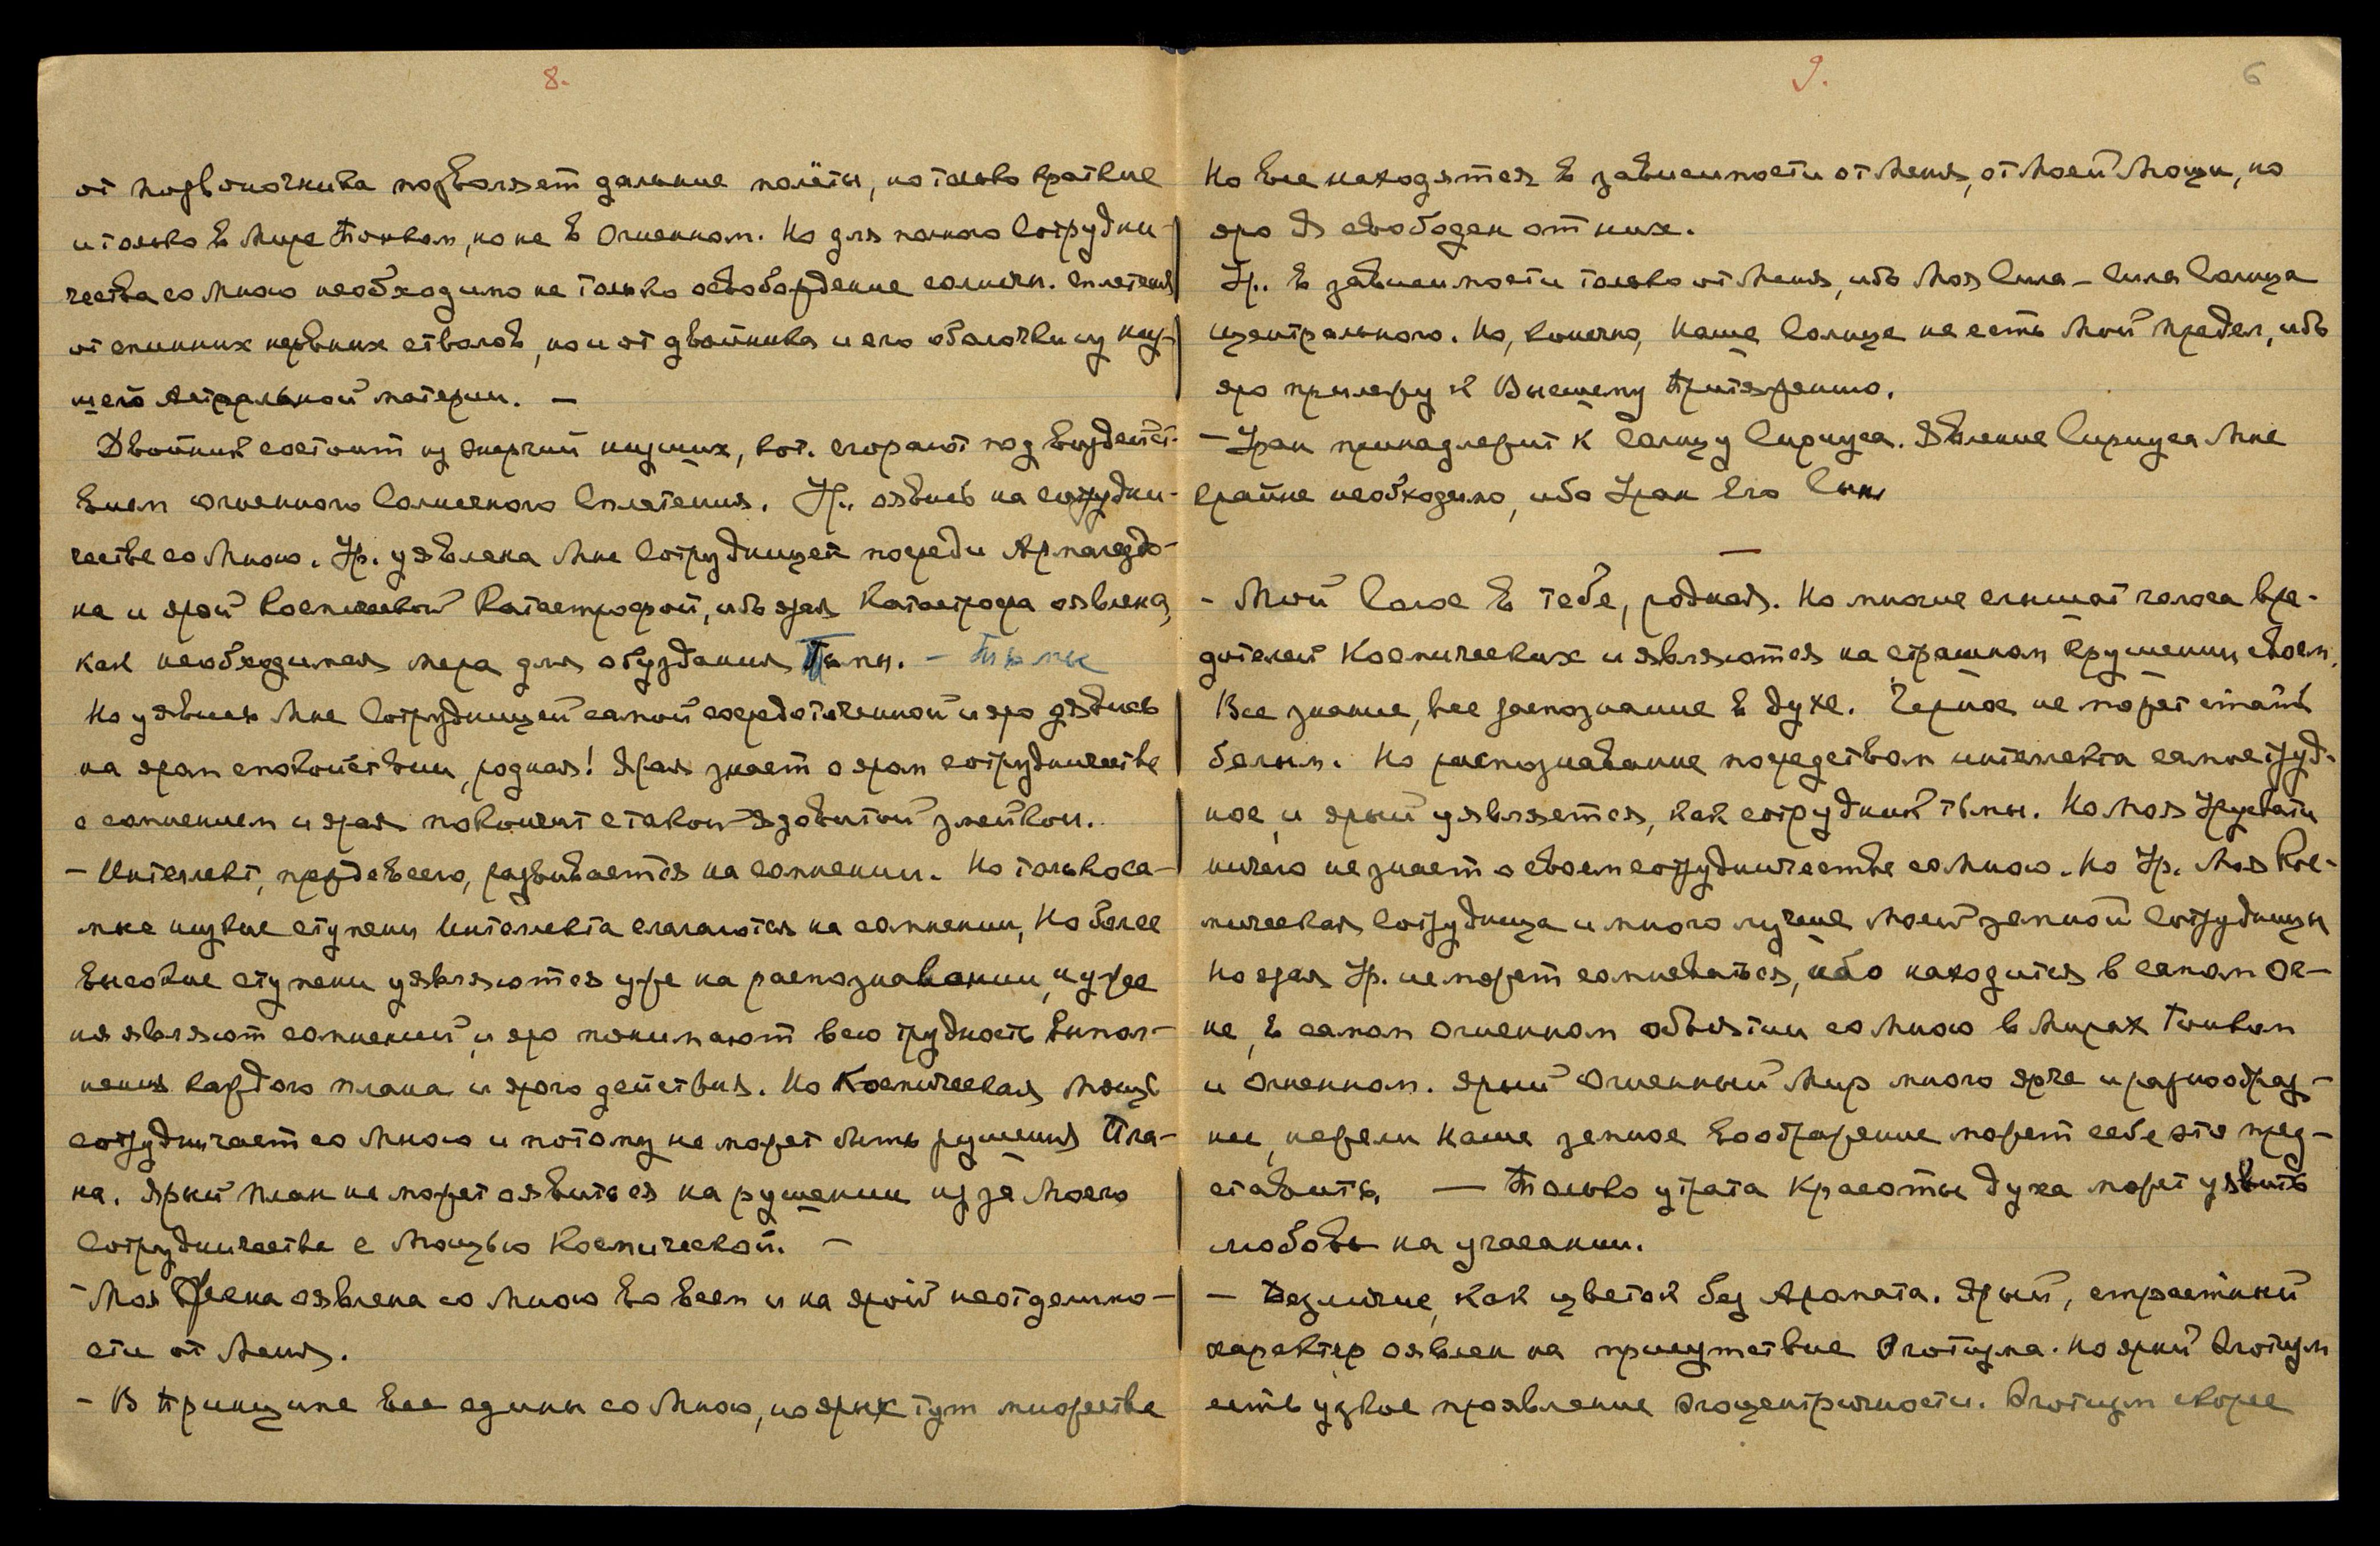 8.
от позвоночника позволяет дальние полёты, но только краткие
и только в Мире Тонком, но не в Огненном. Но для полного Сотрудни-
чества со Мною необходимо не только освобождение солнечн. сплетения
от спинных нервных стволов, но и от двойника и его оболочки из низ-
шего Астральной материи. —
Двойник состоит из энергий низших, кот. сгорают под воздейст-
вием огненного Солнечного Сплетения. Ур. явись на сотрудни-
честве со Мною. Ур. уявлена Мне Сотрудницей посреди Армагеддо-
на и ярой Космической Катастрофой, ибо ярая Катастрофа оявлена,
как необходимая мера для обуздания Тьмы. — Тьмы
Но уявись Мне Сотрудницей самой сосредоточенной и яро дявись
на яром спокойствии, родная! Ярая знает о яром сотрудничестве
с сомнением и ярая покончит с такой ядовитой змейкой.
— Интеллект, прежде всего, развивается на сомнении. Но только са-
мые низкие ступени Интеллекта слагаются на сомнении, Но более
высокие ступени уявляются уже на распознавании, и уже
не являют сомнений, и яро понимают всю трудность выпол-
нения каждого плана и ярого действия. Но Космическая Мощь
сотрудничает со Мною и потому не может быть рушения Пла-
на. Ярый План не может оявиться на рушении из за Моего
Сотрудничества с Мощью Космической. —
— Моя Жена оявлена со Мною во всем и на ярой неотделимо-
сти от Меня.
— В Принципе все едины со Мною, но ярых тут множество
9.
6
Но все находятся в зависимости от Меня, от Моей Мощи, но
яро Я свободен от них.
Ур. в зависимости только от Меня, ибо Моя Сила — Сила Солнца
центрального. Но, конечно, Наше Солнце не есть Мой Предел, ибо
яро прилежу к Высшему Притяжению.
— Уран принадлежит к Солнцу Сириуса. Явление Сириуса Мне
крайне необходимо, ибо Уран Его Сын
—
- Мой Голос в тебе, родная. Но многие слышат голоса вре-
дителей Космических и являются на страшном крушении своем.
Все знание, все распознание в духе. Черное не может стать
белым. Но распознавание посредством интеллекта самое труд-
ное, и ярый уявляется, как сотрудник тьмы. Но Моя Урусвати
ничего не знает о своем сотрудничестве со Мною. Но Ур. Моя Кос-
мическая Сотрудница и много лучше Моей земной Сотрудницы
Но ярая Ур. не может сомневаться, ибо находится в самом Ог-
не, в самом огненном объятии со Мною в Мирах Тонком
и Огненном. Ярый Огненный Мир много ярче и разнообраз-
нее, нежели Наше земное воображение может себе это пред-
ставить. — Только утрата Красоты духа может уявить
любовь на угасании.
— Безличие, как цветок без Аромата. Ярый, страстный
характер оявлен на присутствие Эготизма. Но ярый Эготизм
есть узкое проявление эгоцентричности. Эготизм скорее